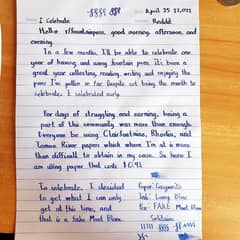 April 25 17,021
I Celebrate. Reddit
Hello r/fountainpens, good morning, afternoon, and
evening.
In a few months, I'll be able to celebrate one
year of having and using fountain pens. It's been a
great year collecting, reading, writing and enjoying the
pens I've gotten so far. Despite not being the month to
celebrate, I celebrated early.
For days of struggling and earning, being a
part of this community was more than enough.
Everyone be using Clairfontaine, Rhodia, and
Tomoe River papers which where I'm at is more
than difficult to obtain in my case. So here I
am using paper that costs $0.41
To celebrate, I decided
to get what I can only
get at this time, and
that is a fake Mont Blanc
Paper:
Ink:
FAKE Mont Blanc